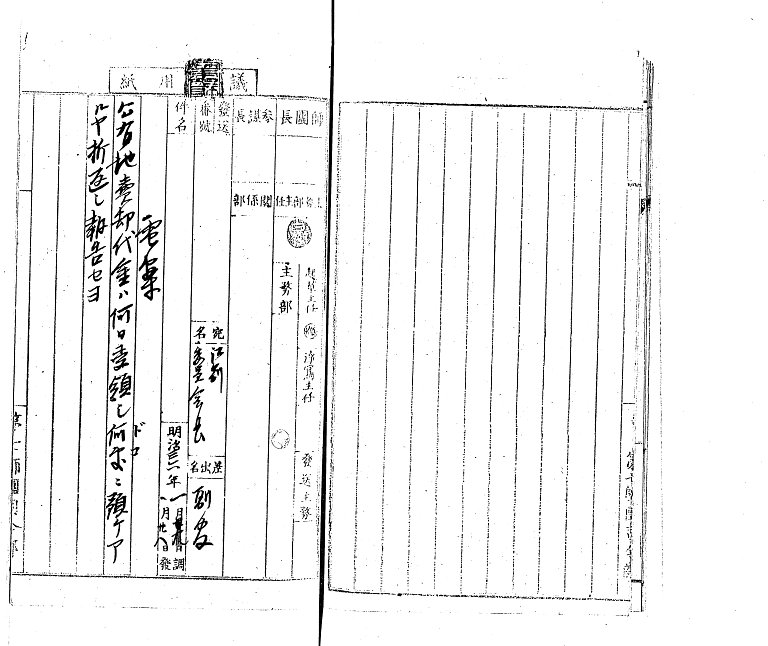 議
用紙
師團長
參謀長
發送番號
件名
主務部主任
關係部
起草主任
淨寫主任
發送主務
主務部
宛名
委員会長
差出名
副官
明治三二年
一月廿九日調
月廿八日發
電案
公有地売却代金ハ何日壹領シ何ドコニ預ケア
ルヤ折返シ報告セヨ
第七師團司令部
第七師團司令部